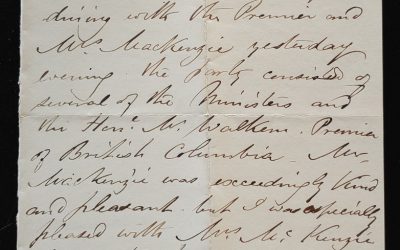 dining with the Premier and
Mrs MacKenzie yesterday
evening the party consisted of
several of the Ministers and
the Honl. Mr. Walkem. Premier
of British Columbia. Mr
MacKenzie was exceedingly kind
and pleasant. but I was especially
pleased with Mrs McKenzie